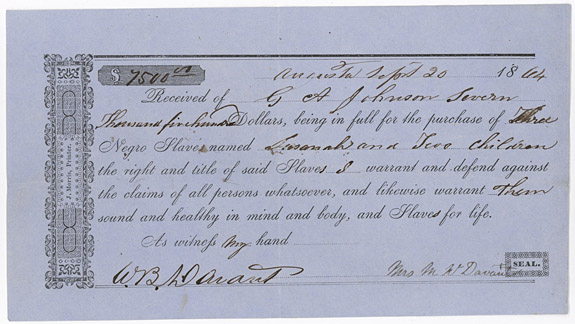 $ 7500 00
Augusta Sept 20 1864
Received of G A Johnson Severn
Thousand five hundred Dollars, being in full for the purchase of Three
Negro Slaves named Susanah and Two Children
the right and title of said Slaves I warrant and defend against
the claims of all persons whatsoever, and likewise warrant Them
sound and healthy in mind and body, and Slaves for life.
As witness my hand
W. B. D'Avant Mrs M
SEAL.
J. Morris, Printer.